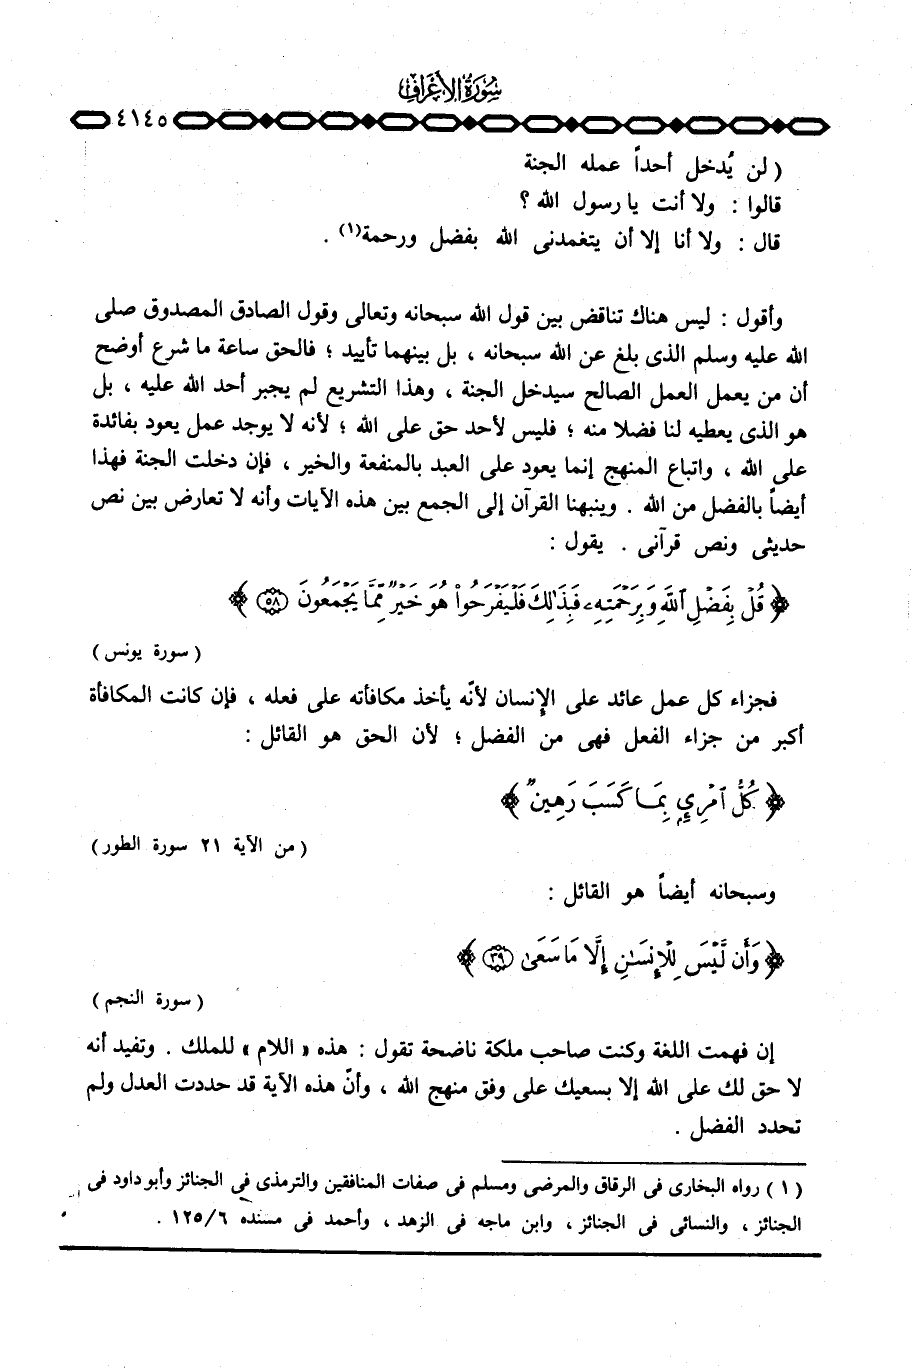 سورة الأعراف
٤١٤٥
( لن يُدخل أحداً عمله الجنة
قالوا : ولا أنت يا رسول الله ؟
قال : ولا أنا إلا أن يتغمدنى الله بفضل ورحمة(١) .
وأقول : ليس هناك تناقض بين قول الله سبحانه وتعالى وقول الصادق المصدوق صلى
الله عليه وسلم الذى بلغ عن الله سبحانه ، بل بينهما تأييد ؛ فالحق ساعة ما شرع أوضح
أن من يعمل العمل الصالح سيدخل الجنة ، وهذا التشريع لم يجبر أحد الله عليه ، بل
هو الذى يعطيه لنا فضلا منه ؛ فليس لأحد حق على الله ؛ لأنه لا يوجد عمل يعود بفائدة
على الله ، واتباع المنهج إنما يعود على العبد بالمنفعة والخير ، فإن دخلت الجنة فهذا
أيضاً بالفضل من الله . وينبهنا القرآن إلى الجمع بين هذه الآيات وأنه لا تعارض بين نص
حديثى ونص قرآنى . يقول :
﴿ قُلْ بِفَضْلِ ٱللَّهِ وَبِرَحْمَتِهِۦ فَبِذَٰلِكَ فَلْيَفْرَحُوا۟ هُوَ خَيْرٌ مِّمَّا يَجْمَعُونَ ٥٨ ﴾
( سورة يونس )
فجزاء كل عمل عائد على الإنسان لأنّه يأخذ مكافأته على فعله ، فإن كانت المكافأة
أكبر من جزاء الفعل فهى من الفضل ؛ لأن الحق هو القائل :
﴿ كُلُّ ٱمْرِئٍ بِمَا كَسَبَ رَهِينٌ ﴾
( من الآية ٢١ سورة الطور )
وسبحانه أيضاً هو القائل :
﴿ وَأَن لَّيْسَ لِلْإِنسَٰنِ إِلَّا مَا سَعَىٰ ٣٩ ﴾
( سورة النجم )
إن فهمت اللغة وكنت صاحب ملكة ناضحة تقول : هذه « اللام » للملك . وتفيد أنه
لا حق لك على الله إلا بسعيك على وفق منهج الله ، وأنّ هذه الآية قد حددت العدل ولم
تحدد الفضل .
( ١ ) رواه البخارى فى الرقاق والمرضى ومسلم فى صفات المنافقين والترمذى فى الجنائز وأبو داود فى
الجنائز ، والنسائى فى الجنائز ، وابن ماجه فى الزهد ، وأحمد فى مسنده ٦/١٢٥ .